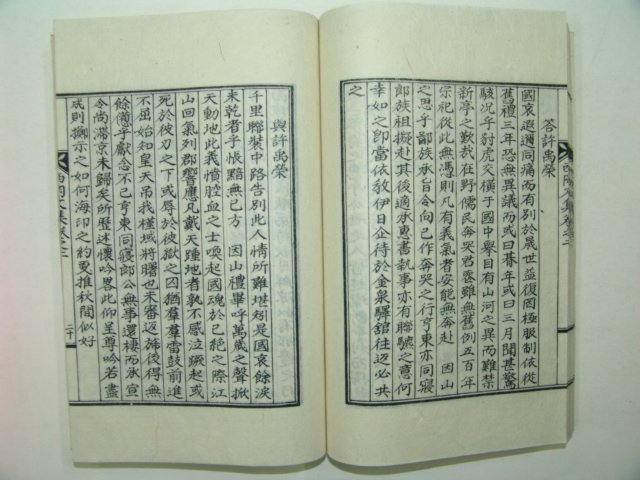 答許禹榮
國哀遐邇同痛而有別於晟世益復罔極服制依從
舊禮三年恐無異議而或曰暮年或曰三月聞甚驚
駭况乎豺虎交橫于國中擧目有山河之異而難禁
新亭之歎哉在野儒民奔哭君喪雖無舊例五百年
宗社從此無憑則凡有義氣者安能無奔赴 因山
之思乎鄙族承旨令向已作奔哭之行亨東亦同寢
郎族祖擬赴其後適承惠書執事亦有聯驂之意何
幸如之卽當依敎伊日企待於金泉驛舘住迋必共
之
與許禹榮
千里聯裝中路告別此人情所難堪矧是國哀餘淚
未乾者乎悵黯無已方 因山禮畢呼萬歲之聲掀
天動地此義憤腔血之士喚起國魂於已絶之際江
山回氣列郡響應凡戴天踵地者孰不感泣蹶起或
死於彼刃之下或辱於彼獄之囚猶羣羣雷鼓前進
不屈始知皇天弔我槿域將曙也未審返旆後得無
餘憊乎獻念不已亨東同寢郎公無事還棲而承宣
令尚滯京未歸矣所歷述懷吟畧此仰呈尊吟若盡
成則擲示之如何海印之約更推秋間似好